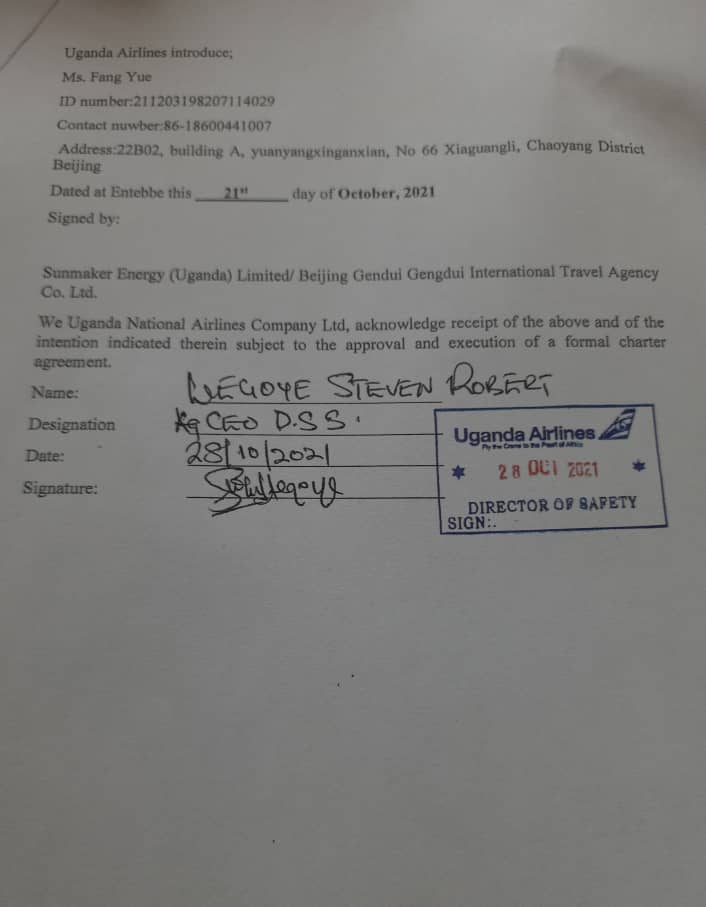 Uganda Airlines introduce;
Ms. Fang Yue
ID number:211203198207114029
Contact nuwber:86-18600441007
Address:22B02, building A, yuanyangxinganxian, No 66 Xiaguangli, Chaoyang District
Beijing
Dated at Entebbe this 21st day of October, 2021
Signed by:
Sunmaker Energy (Uganda) Limited/ Beijing Gendui Gengdui International Travel Agency
Co. Ltd.
We Uganda National Airlines Company Ltd, acknowledge receipt of the above and of the
intention indicated therein subject to the approval and execution of a formal charter
agreement.
Name: WEGOYE STEVEN ROBERT
Designation CEO D.S.S.
Date: 28/10/2021
Signature:
Uganda Airlines
Fly the Crane to the Pearl of Africa
* 28 OCT 2021 *
DIRECTOR OF SAFETY
SIGN:.